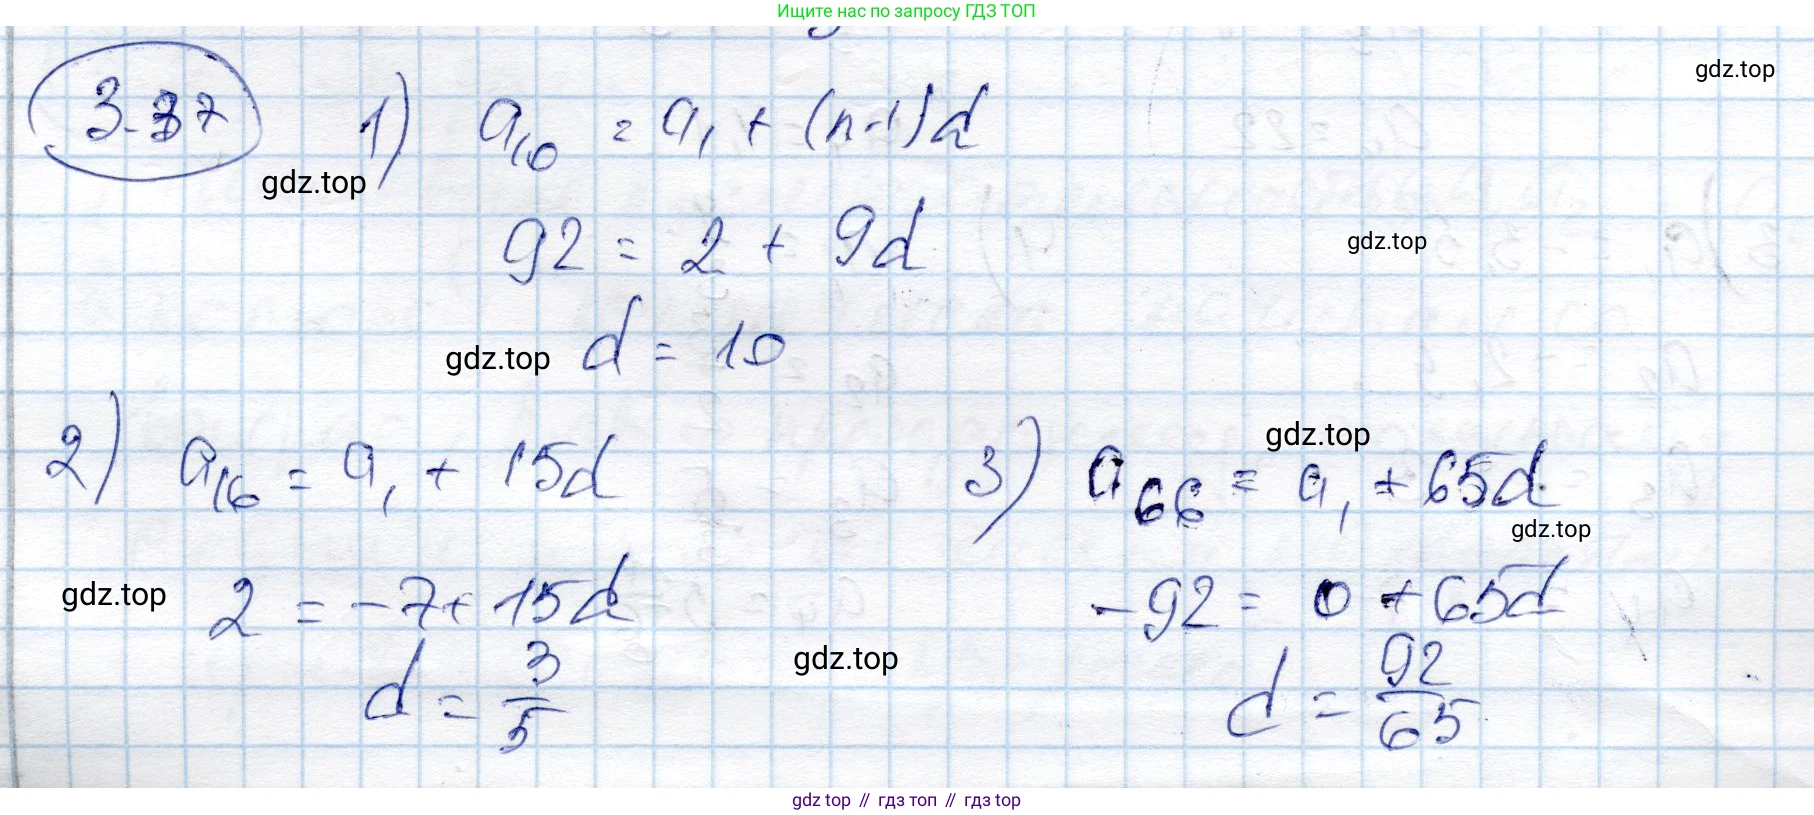 Ищите нас по запросу ГДЗ ТОП
gdz.top
3.37
1) a₁₀ = a₁ + (n-1)d
gdz.top
92 = 2 + 9d
gdz.top
gdz.top
d = 10
2) a₁₆ = a₁ + 15d
gdz.top
3) a₆₆ = a₁ + 65d
gdz.top
gdz.top
2 = -7 + 15d
-92 = 0 + 65d
gdz.top
d = 3/5
d = 92/65
gdz top // гдз топ // гдз top